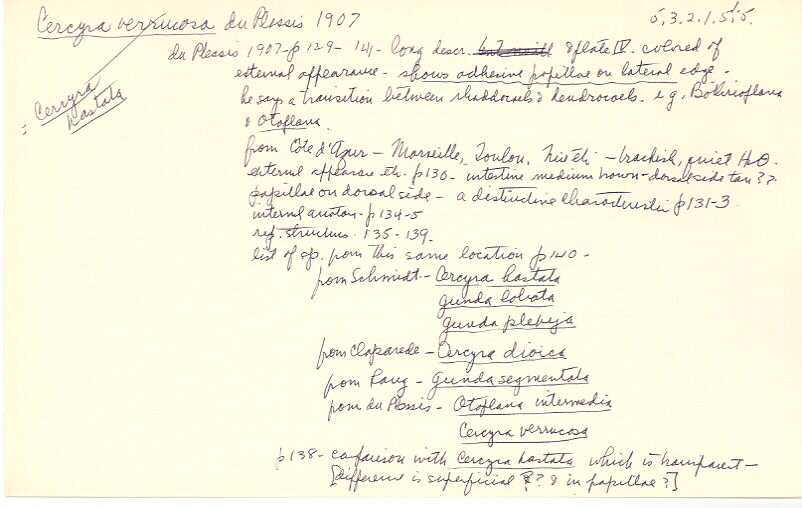 Cercyra verrucosa du Plessis 1907
5.3.2.1.5.5.
du Plessis 1907-p 129- 141- long descr. & plate IV. colored of
external appearance - shows adhesive papillae on lateral edge -
he says a transition between rhabdocoels & dendrocoels. e.g. Bothrioplana
& Otoplana.
= Cercyra hastata
from Côte d'Azur - Marseille, Toulon, Nice etc - brackish, quiet H2O.
external appearance etc. p130 - intestine medium brown - dorsal side tan??
papillae on dorsal side - a distinctive characteristic p131-3.
internal anatom - p134-5
rep. structures. 135-139.
list of sp. from this same location p140 -
from Schmidt - Cercyra hastata
Gunda lobata
Gunda plebeja
from Claparede - Cercyra dioica
from Lang - Gunda segmentata
from du Plessis - Otoplana intermedia
Cercyra verrucosa
p138 - comparison with Cercyra hastata which is transparent -
[difference is superficial ?? & in papillae?]